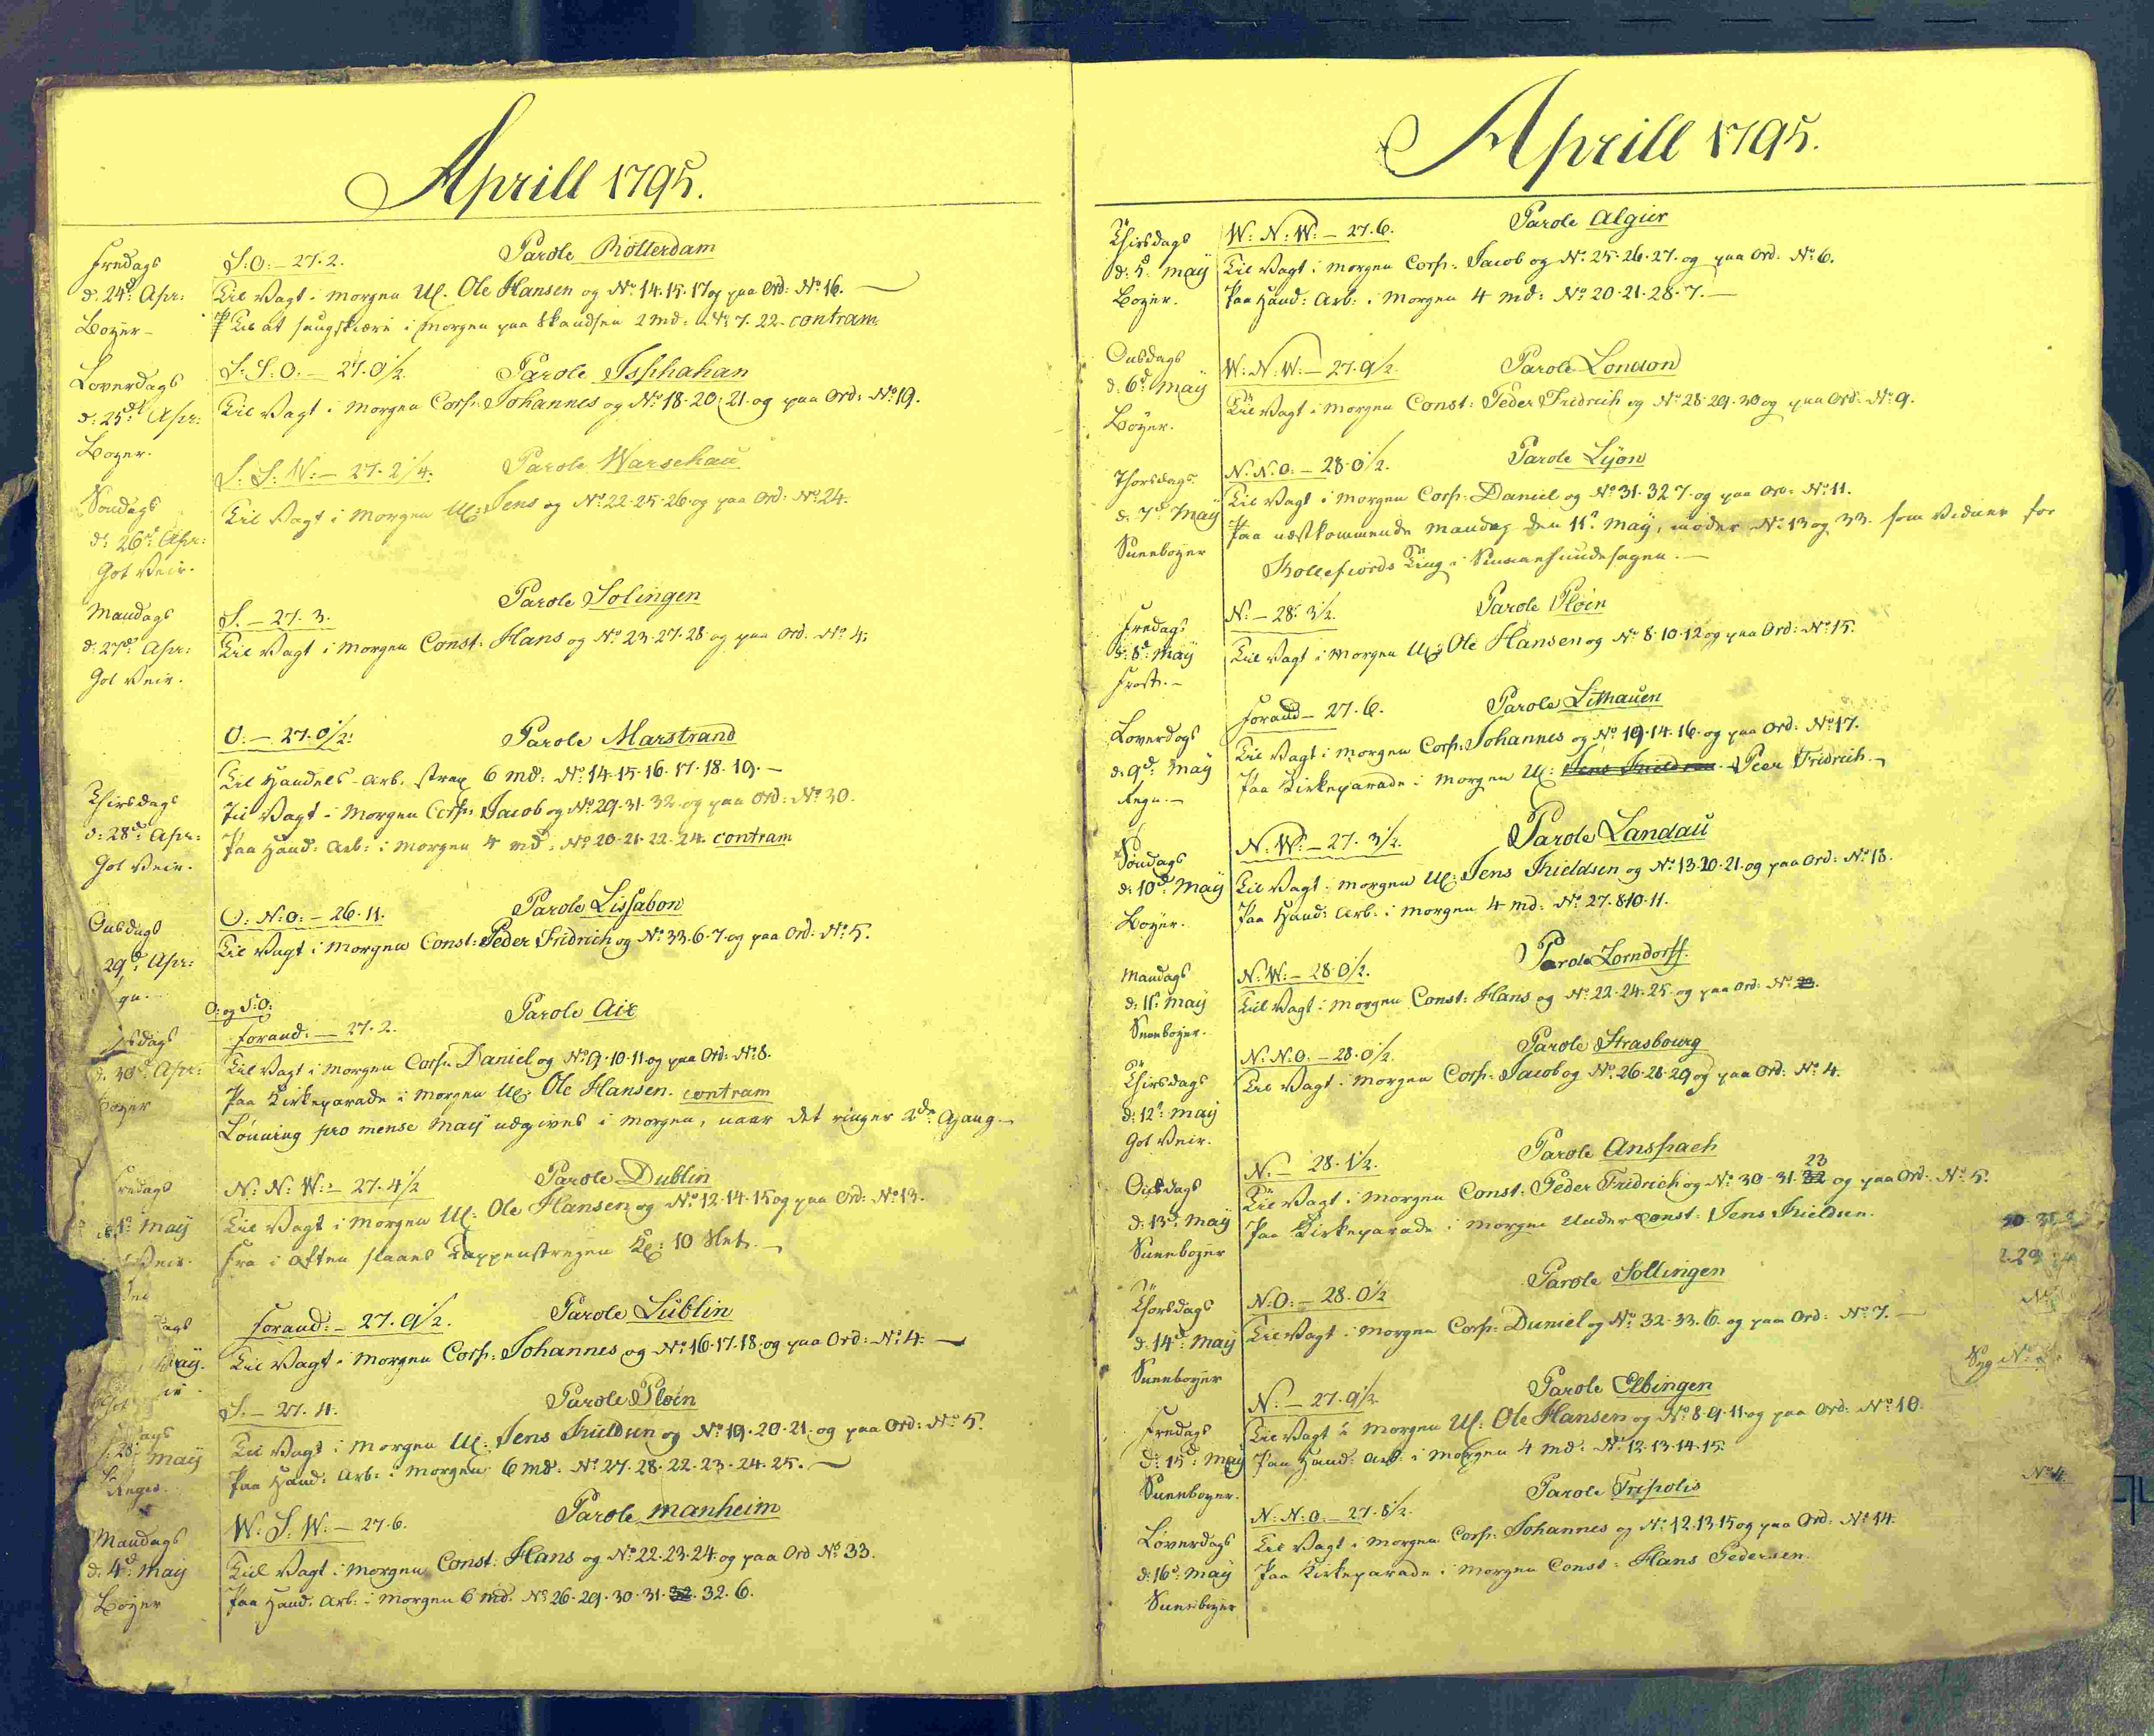 Aprill 1795.
Fredags
d. 24d: Apr:
Boyer
S:O: – 27. 2.
Parole Rotterdam
Til Vagt i morgen Uf. Ole Hansen og No 14. 15. 17 og paa Ord: No 16.
i morgen paa Skandsen 2 md: No 7. 22. contram
Loverdags
d: 25d: Apr:
Boyer.
S: S: O. – 27. 0 1/2
Parole Isphahan
Til Vagt i morgen Corp: Johannes og No 18. 20. 21. og paa Ord: No 19.
Søndags
d: 26d: Apr:
Got Veir.
S: S: W: – 27. 2 1/4.
Parole Warschau
Til Vagt i morgen Uf: Jens og No 22. 25. 26. og paa Ord: No 24.
Mandags
d. 27d: Apr:
Got Veir.
S. – 27. 3.
Parole Solingen
Til Vagt i morgen Const: Hans og No 23. 27. 28 og paa Ord. No 4.
Thirsdags
d: 28d: Apr:
Got Veir.
O. – 27. 0 1/2.
Parole Marstrand
Til Handels-Arb. strax 6 md: No 14. 15. 16. 17. 18. 19. –
Til Vagt i morgen Corp: Jacob og No 29. 31. 32. og paa Ord: No 30.
Paa Hand: Arb: i morgen 4 md: No 20. 21. 22. 24. contram
Onsdags
29d: Apr:
O: N: O: – 26. 11.
Parole Lissabon
Til Vagt i morgen Const: Peder Fridrich og No 33. 6. 7. og paa Ord: No 5.
d. 30d: Apr:
Boyer
O: og S:O:
forand: – 27. 2.
Parole Aix
Til Vagt i morgen Corp: Daniel og No 9. 10. 11 og paa Ord: No 8.
Paa Kirkeparade i morgen Uf. Ole Hansen. contram
Lønning pro mense May udgives i morgen, naar det ringer 2de Gang. –
Fredags
1d: May
Veir.
N: N: W: – 27. 4 1/2
Parole Dublin
Til Vagt i morgen Uf: Ole Hansen og No 12. 14. 15 og paa Ord: No 13.
Fra i Aften slaaes Tappenstregen Kl: 10 Slet. –
May.
forand: – 27. 9 1/2.
Parole Lublin
Til Vagt i morgen Corp: Johannes og No 16. 17. 18. og paa Ord: No 4. –
May
S. – 27. 11.
Parole Pløen
Til Vagt i morgen Uf: Jens Kieldsen og No 19. 20. 21. og paa Ord: No 5.
Paa Hand: Arb: i morgen 6 md: No 27. 28. 22. 23. 24. 25. –
Mandags
d: 4d: May
Boyer
W. S: W: – 27. 6.
Parole Manheim
Til Vagt i morgen Const: Hans og No 22. 23. 24 og paa Ord No 33.
Paa Hand: Arb: i morgen 6 md. No 26. 29. 30. 31. 32. 32. 6.
Aprill 1795.
Thirsdags
d: 5. May
Boyer.
W: N: W: – 27. 6.
Parole Algier
Til Vagt i morgen Corp: Jacob og No 25. 26. 27. og paa Ord. No 6.
Paa Hand: Arb: i morgen 4 md: No 20. 21. 28. 7. –
Onsdags
d: 6d: May
Boyer.
W: N. W: – 27. 9 1/2.
Parole London
Til Vagt i morgen Const: Peder Fridrich og No 28. 29. 30 og paa Ord. No 9.
Thorsdags
d: 7d: May
Sneeboyer
N: N: O: – 28. 0 1/2.
Parole Lyon
Til Vagt i morgen Corp: Daniel og No 31. 32 7. og paa Ord. No 11.
Paa næstkommende Mandag den 11d May, møder No 13 og 33. som Vidner for
Kollefiords Ting i
Fredags
d: 8d: May
Frost. –
N: – 28. 3 1/2.
Parole Pløen
Til Vagt i morgen Uf: Ole Hansen og No 8. 10. 12 og paa Ord: No 15.
Loverdags
d: 9d: May
Regn. –
forand – 27. 6.
Parole Litthauen
Til Vagt i morgen Corp: Johannes og No 19. 14. 16. og paa Ord: No 17.
Paa Kirkeparade i morgen Uf: Jens Kieldsen. Peer Fridrich. –
Søndags
d: 10d: May
Boyer.
N: W: – 27. 3 1/2.
Parole Landau
Til Vagt i morgen Uf: Jens Kieldsen og No 13. 20. 21. og paa Ord: No 18.
Paa Hand: Arb: i morgen 4 md: No 27. 8 10. 11.
Mandags
d: 11d: May
Sneeboyer.
N: W: – 28. 0 1/2.
Parole Zorndorff.
Til Vagt i morgen Const: Hans og No 22. 24. 25. og paa Ord: No 23.
Thirsdags
d: 12d: May
Got Veir.
N: N: O. – 28. 0 1/2.
Parole Strasbourg
Til Vagt i morgen Corp: Jacob og No 26. 28. 29 og paa Ord: No 4.
Onsdags
d: 13d: May
Sneeboyer
N. – 28. 1 1/2.
Parole Anspach
23
Til Vagt i morgen Const: Peder Fridrich og No 30. 31. 32 og paa Ord. No 5.
Paa Kirkeparade i morgen Underconst: Jens Kieldsen.
Thorsdags
d: 14d: May
Sneeboyer
N:O: – 28. 0 1/2
Parole Sollingen
Til Vagt i morgen Corp: Daniel og No 32. 33. 6. og paa Ord: No 7. –
Fredags
d: 15d: May
Sneeboyer.
N: – 27. 9 1/2
Parole Elbingen
Til Vagt i morgen Uf: Ole Hansen og No 8. 9. 11 og paa Ord: No 10.
Paa Hand: Arb: i morgen 4 md: No 12. 13. 14. 15.
Løverdags
d: 16d: May
Sneeboyer
N: N: O. – 27. 8 1/2.
Parole Tripolis
Til Vagt i morgen Corp: Johannes og No 12. 13. 15 og paa Ord: No 14.
Paa Kirkeparade i morgen Const: Hans Pedersen.
No 4